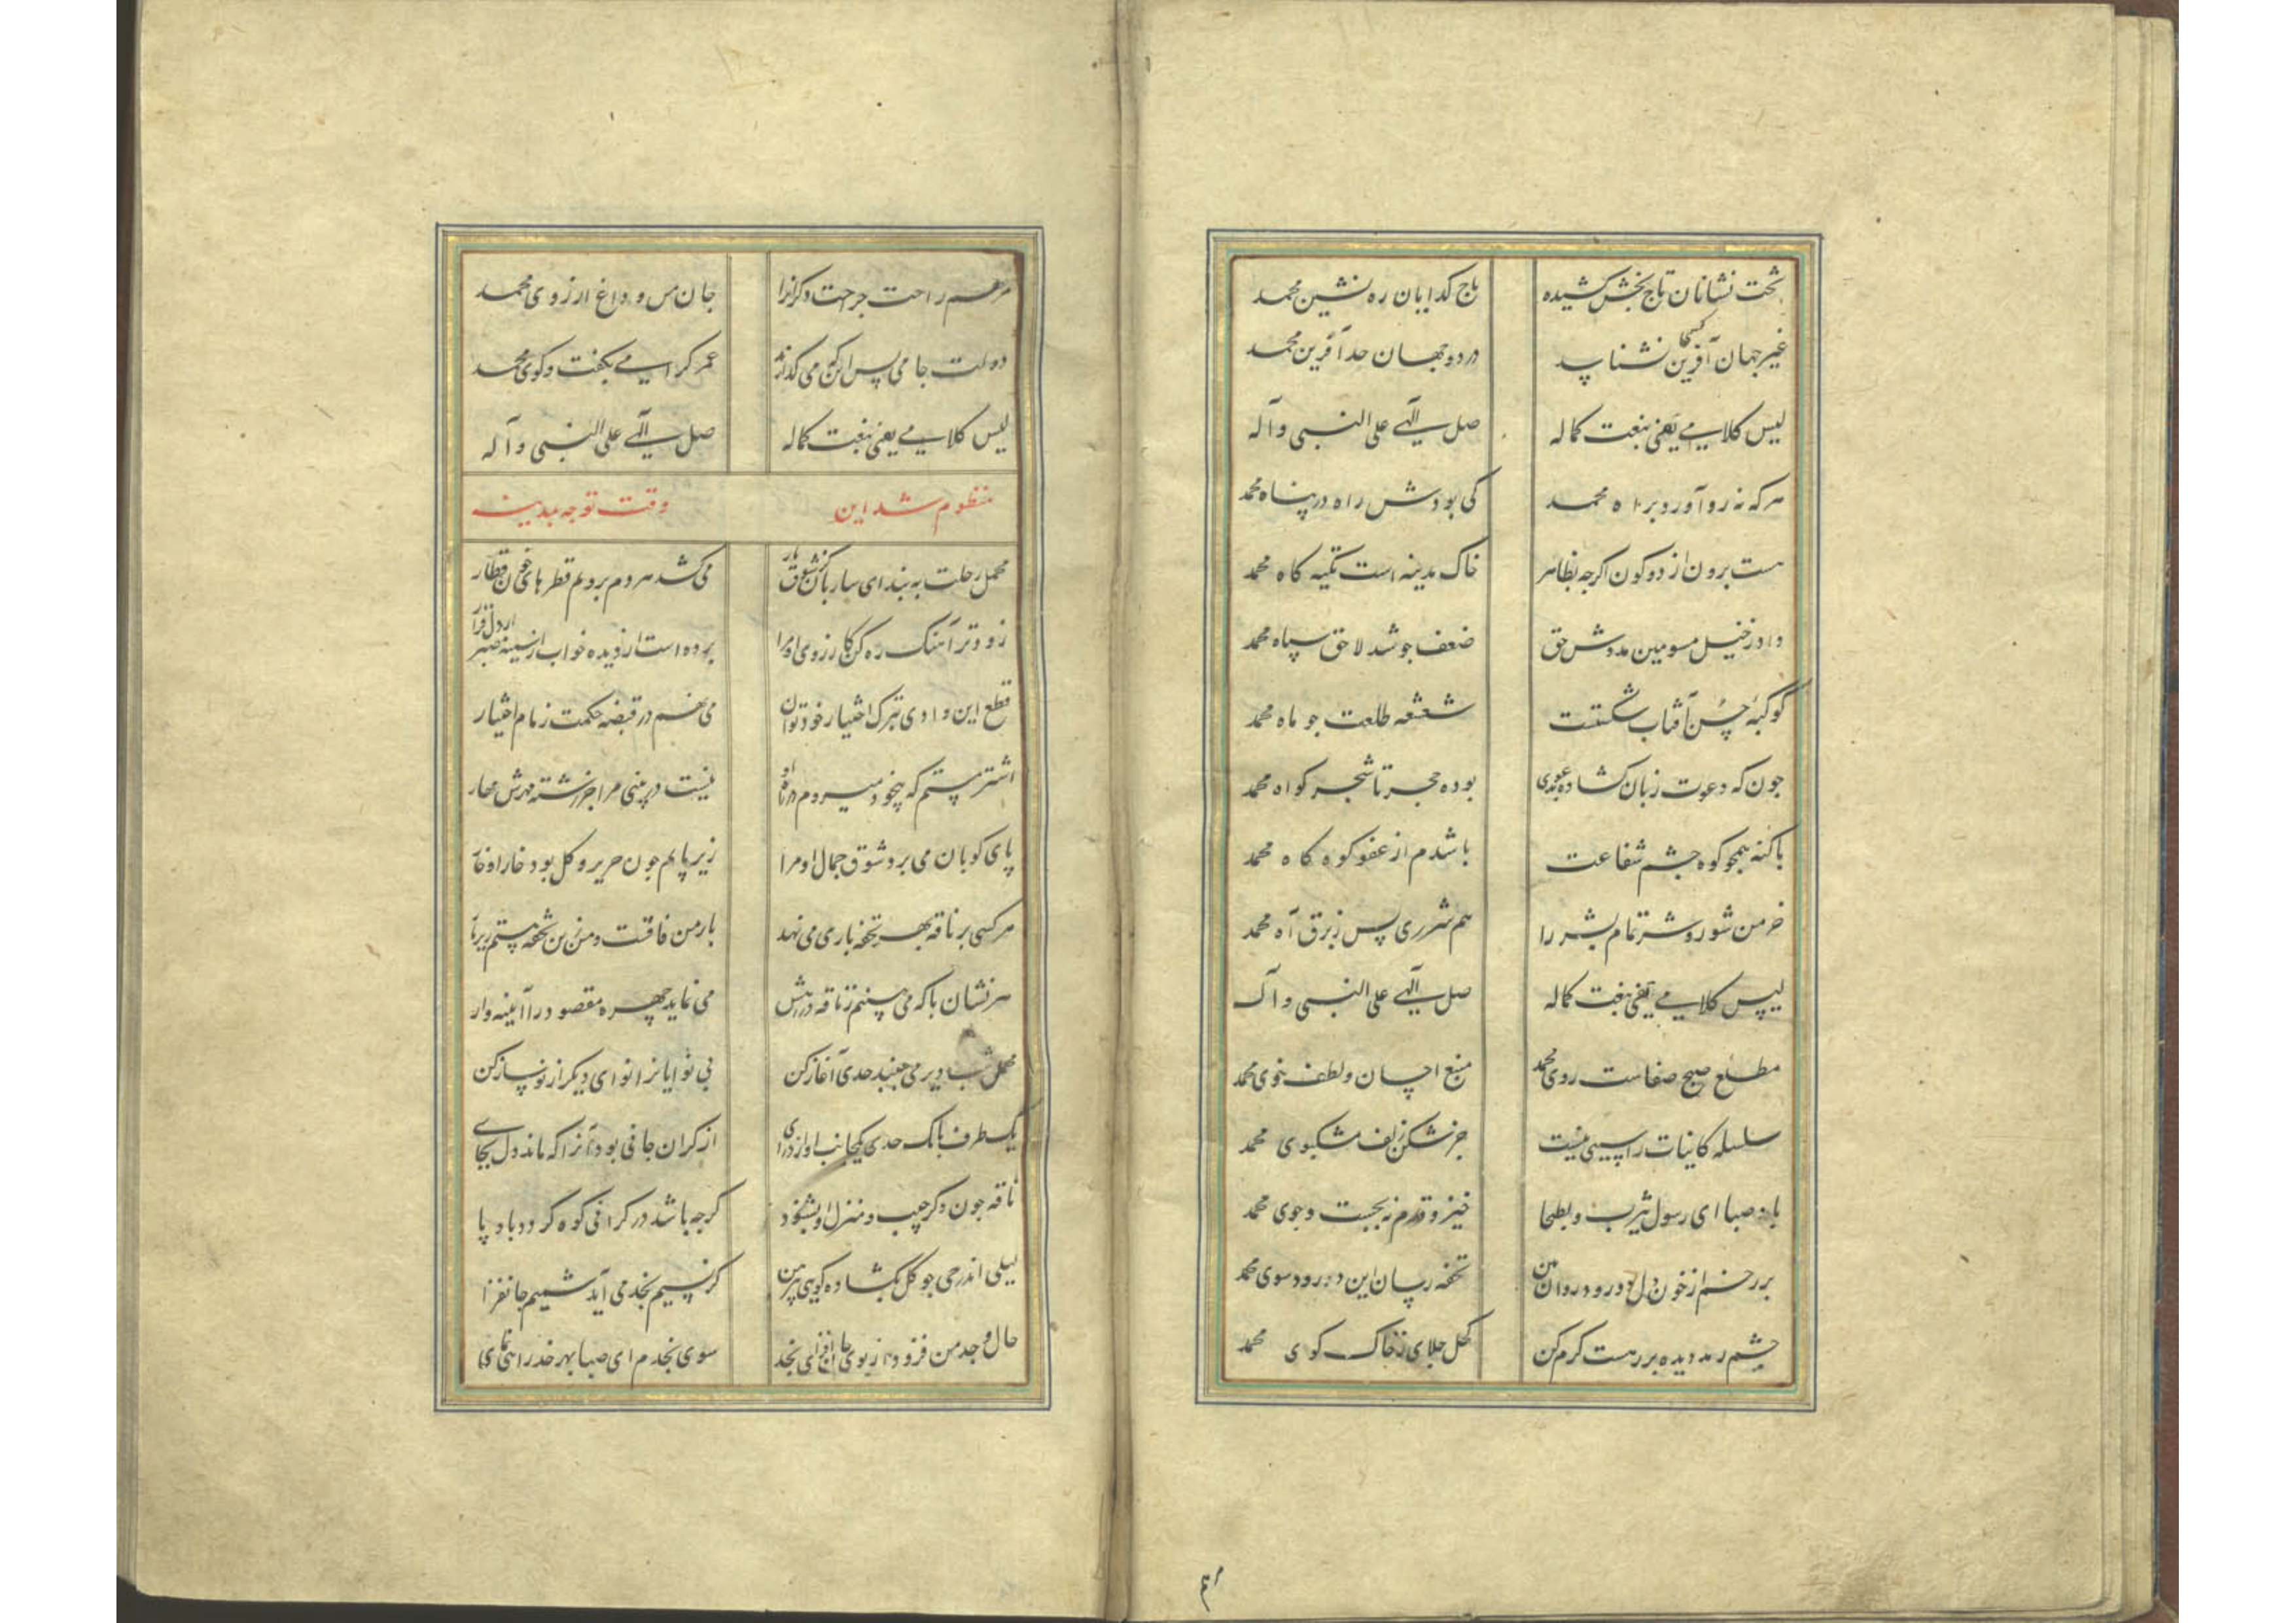 تخت نشانان تاج بخش کشیده تاج کدایان ره نشین محمد
غیر جهان آفرین کسیکما نشناسد در دو جهان حد آفرین محمد
لیس کلامی یفی بنعت کماله صل الهی علی النبی و آله
هر که نه رو آورد براه محمد کی بودش راه در پناه محمد
هست برون از دو کون اکرچه بظاهر خاک مدینه است تکیه کاه محمد
داد ز خیل مسومین مددش حق ضعف جو شد لاحق سپاه محمد
کوکبه حسن آفتاب شکستت شعشعه طلعت جو ماه محمد
جون که دعوت زبان کشاده بوده حجر تا شجر کواه محمد
با کنه همجو کوه جشم شفاعت باشدم از عفو کوه کاه محمد
خرمن شور و شر تمام بشر را هم شرری پس ز برق آه محمد
لیس کلامی یفی بنعت کماله صل الهی علی النبی و آله
مطلع صبح صفاست روی محمد منبع احسان و لطف خوی محمد
سلسله کاینات را سببی نیست جز شکن زلف مشکبوی محمد
باد صبا ای رسول یثرب و بطحا خیز و قدم نه بجست و جوی محمد
بر رخم از خون دل دو رود روان من تحفه رسان این درود سوی محمد
جشم رمد دیده بر رهست کرم کن کحل جلای ز خاک کوی محمد
مرهم راحت جراحت دکرانرا جان من و داغ ارزوی محمد
دولت جامی پس این که می کذراند عمر کرامی بکفت و کوی محمد
لیس کلامی یفی بنعت کماله صل الهی علی النبی و آله
منظوم شد این وقت توجه بمدینه
محمل رحلت به بند ای ساربان کز شوق یار می کشد هر دم برویم قطرهای خون قطار
زودتر آهنک ره کن کارزوی او مرا برده است از دیده خواب از سینه صبر از دل قرار
قطع این وادی بترک اختیار خود توان می نهم در قبضه حکمت زمام اختیار
اشتر مستم که بیخود میروم در راه او نیست در بینی مرا جز رشته مهرش مهار
پای کوبان می برد شوق جمال او مرا زیر پایم جون حریر و کل بود خارا و خار
هر کسی بر ناقه بهر تحفه باری می نهد بار من فاقست و من زین تحفه هستم زیر بار
هر نشان پا که می بینم ز ناقه در رهش می نماید جهره مقصود را آیینه وار
محمل شب دیر می جنبد حدی آغاز کن بی نوایانرا نوای دیکر از نو ساز کن
یک طرف بانک حدی یکجانب اواز درای از کران جانی بود آنرا که ماند دل بجای
ناقه جون ذکر حبیب و منزل او بشنود کرجه باشد در کرانی کوه کردد باد پا
لیلی اندر حی جو کل بکشاده کویی پیرهن کز نسیم نجد می آید شمیم جانفزا
حال و جد من فزود از بوی جان افزای نجد سوی نجدم ای صبا بهر خدا راهی نمای